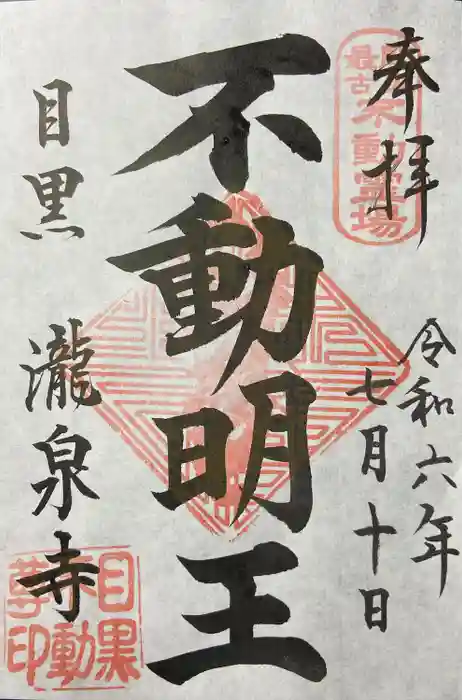 奉拝
関東最古不動霊場
令和六年
七月十日
不動明王
目黒 瀧泉寺
目黒不動尊印